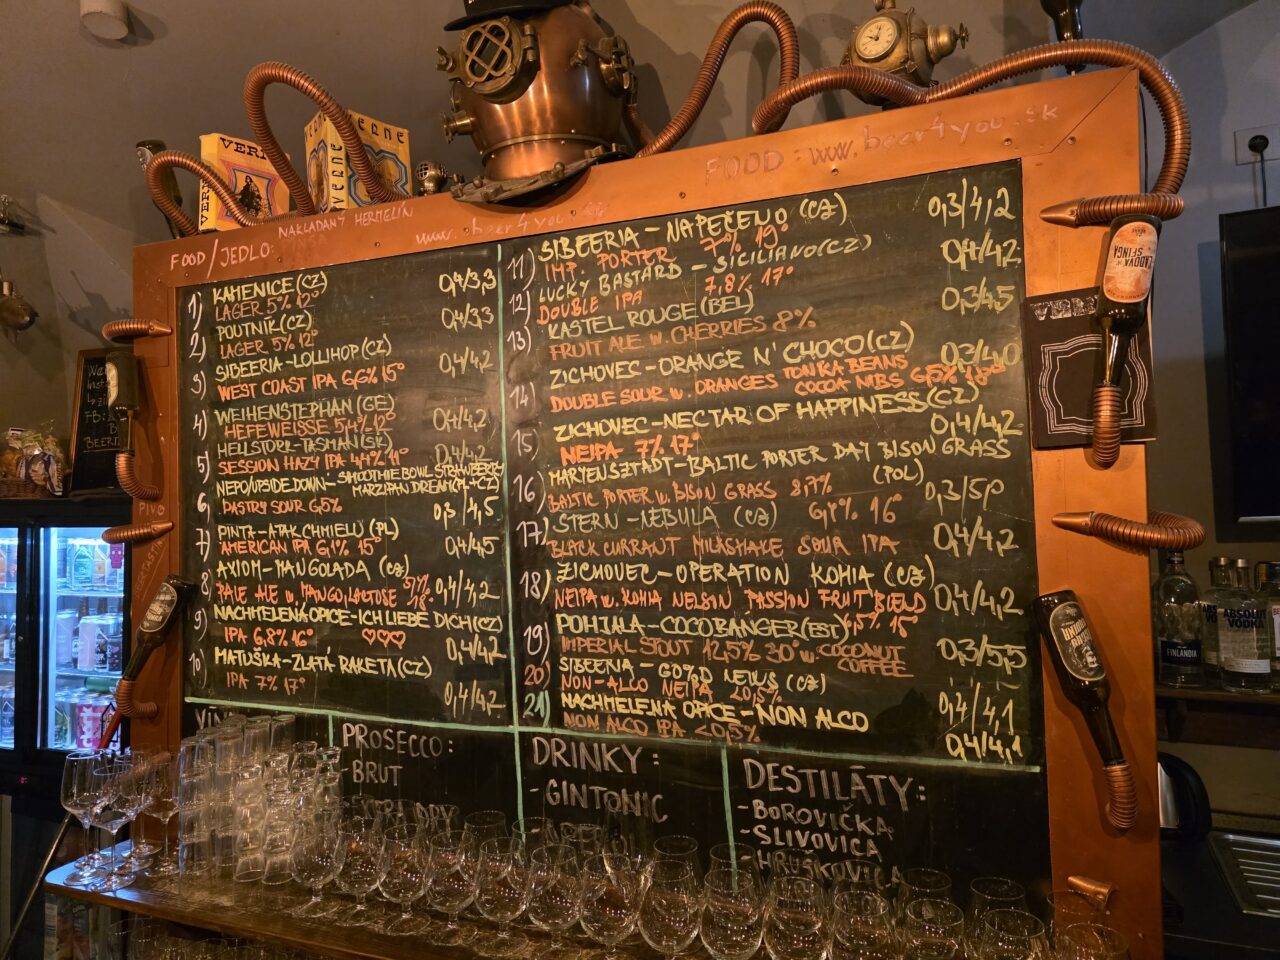 FOOD : www.beer4you.sk
FOOD/JEDLO: NAKLADANÝ HERMELÍN
www.beer4you.sk
VERNE
VERNE
1) KAMENICE(CZ) 0,4/3,3
LAGER 5% 12°
2) POUTNÍK(CZ) 0,4/3,3
LAGER 5% 12°
3) SIBEERIA-LOLLIHOP(CZ) 0,4/4,2
WEST COAST IPA 6,6% 15°
4) WEIHENSTEPHAN(GE) 0,4/4,2
HEFEWEISSE 5,4% 12°
5) HELLSTORK-TASMAN(SK) 0,4/4,2
SESSION HAZY IPA 4,4% 11°
6 NEPO/UPSIDE DOWN- SMOOTHIE BOWL STRAWBERRY
MARZIPAN DREAM(PL+CZ)
PASTRY SOUR 6,5% 0,3/4,5
7) PINTA-ATAK CHMIELU(PL) 0,4/4,5
AMERICAN IPA 6,1% 15°
8) AXIOM-MANGOLADA (CZ) 0,4/4,2
PALE ALE w. MANGO, LACTOSE
9) NACHMELENÁ OPICE-ICH LIEBE DICH(CZ)
IPA 6,8% 16° ♡♡♡ 0,4/4,2
10) MATUŠKA-ZLATÁ RAKETA(CZ)
IPA 7% 17° 0,4/4,2
11) SIBEERIA-NAPEČENO (CZ) 0,3/4,2
IMP. PORTER 7% 19°
12) LUCKY BASTARD-SICILIANO(CZ) 0,4/4,2
DOUBLE IPA 7,8% 17°
13) KASTEL ROUGE(BEL) 0,3/4,5
FRUIT ALE w. CHERRIES 8%
14) ZICHOVEC-ORANGE N' CHOCO(CZ) 0,3/4,0
DOUBLE SOUR w. ORANGES TONKA BEANS
COCOA NIBS 6,5% 18°
15) ZICHOVEC-NECTAR OF HAPPINESS(CZ) 0,4/4,2
NEIPA 7% 17°
16) MARYENSZTADT-BALTIC PORTER DAY BISON GRASS
(POL)
BALTIC PORTER w. BISON GRASS 8,7% 0,3/5,0
17) STERN-NEBULA (CZ) 16° 0,4/4,2
BLACK CURRANT MILKSHAKE SOUR IPA
18) ZICHOVEC-OPERATION KOHIA (CZ) 0,4/4,2
NEIPA w. KOHIA NELSON PASSION FRUIT BLEND 6,5% 15°
19) POHJALA-COCOBANGER(EST) 0,3/5,5
IMPERIAL STOUT 12,5% 30° w. COCONUT
COFFEE
20) SIBEERIA-GO%D NEWS (CZ) 0,4/4,1
NON-ALCO NEIPA <0,5%
21) NACHMELENÁ OPICE-NON ALCO 0,4/4,1
NON ALCO IPA <0,5%
PROSECCO:
-BRUT
DRINKY:
-GINTONIC
DESTILÁTY:
-BOROVIČKA
-SLIVOVICA
-HRUŠKOVICA
PIVO
FINLANDIA
ABSOLUT
VODKA